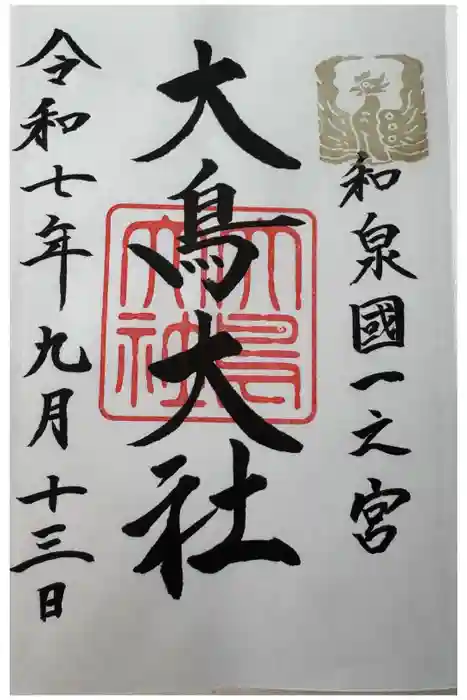 和泉國一之宮
大鳥大社
大鳥大社
令和七年九月十三日